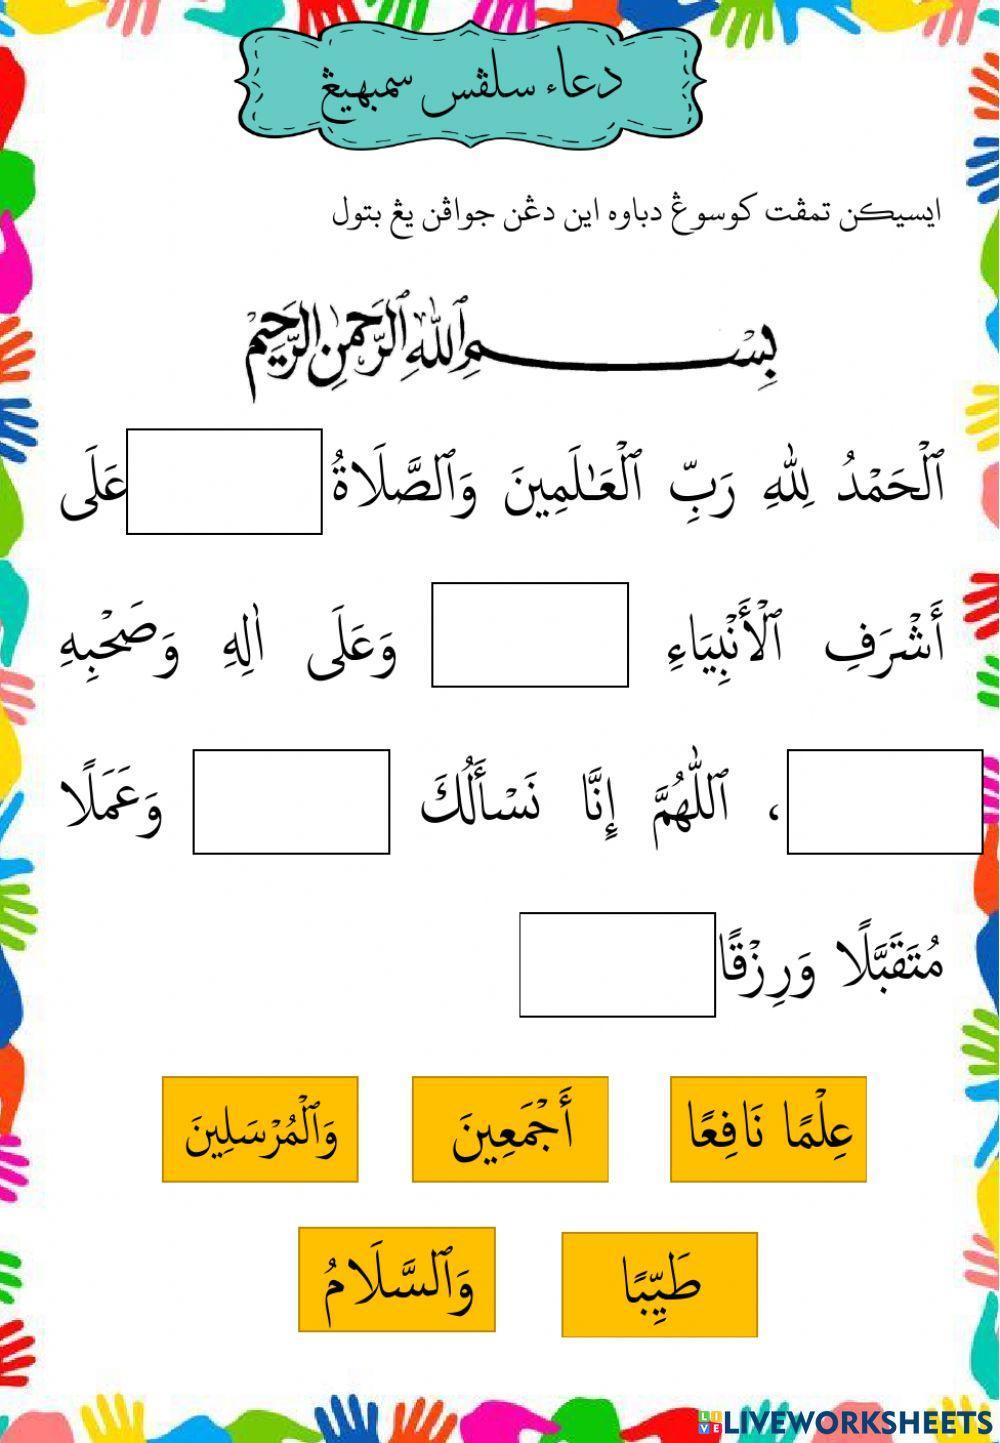 دعاء سلڤس سمبهيڠ
ايسيكن تمڤت كوسوڠ دباوه اين دڠن جواڤن يڠ بتول
بِسْمِ ٱللَّهِ ٱلرَّحْمَٰنِ ٱلرَّحِيمِ
ٱلْحَمْدُ لِلَّهِ رَبِّ ٱلْعَـٰلَمِينَ وَٱلصَّلَاةُ عَلَى
أَشْرَفِ ٱلْأَنْبِيَاءِ وَعَلَى اٰلِهِ وَصَحْبِهِ
، ٱللّٰهُمَّ إِنَّا نَسْأَلُكَ وَعَمَلًا
مُتَقَبَّلًا وَرِزْقًا
عِلْمًا نَافِعًا أَجْمَعِينَ وَٱلْمُرْسَلِينَ
طَيِّبًا وَٱلسَّلَامُ
LIVEWORKSHEETS